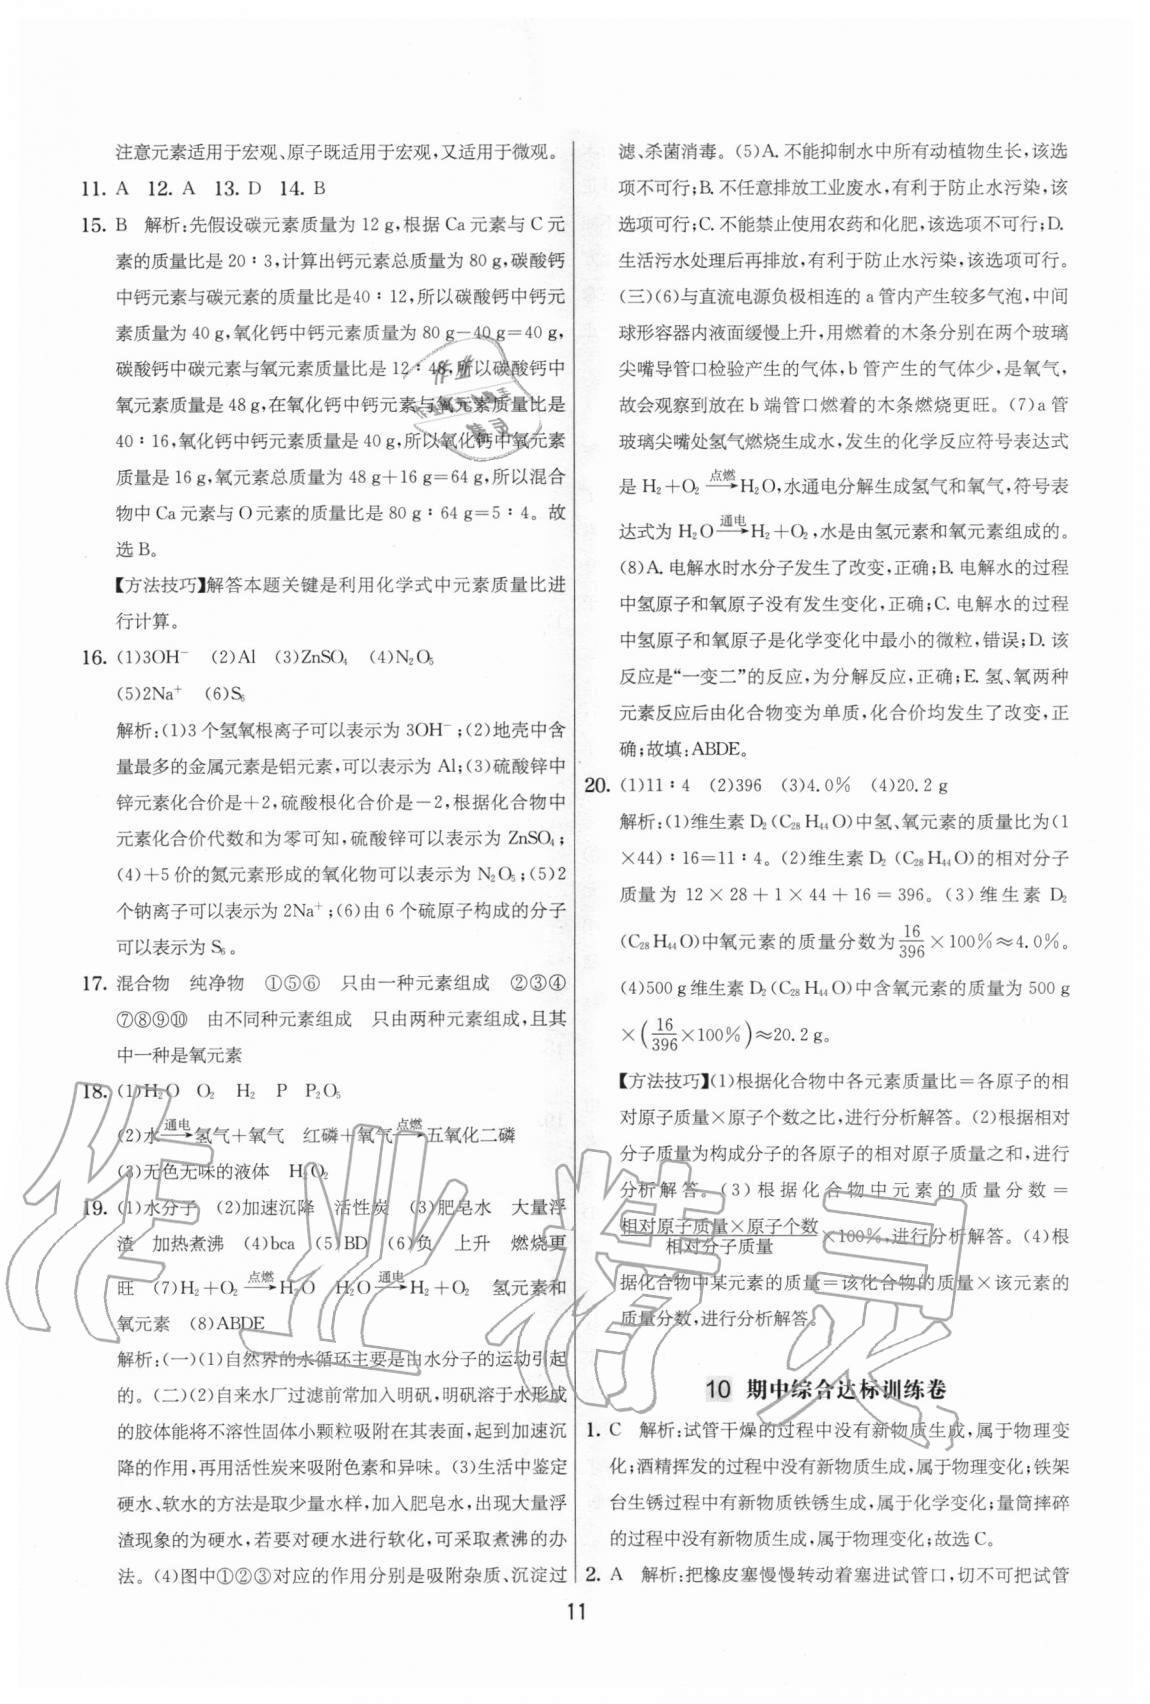 注意元素适用于宏观、原子既适用于宏观,又适用于微观。
11. A 12. A 13. D 14. B
15. B 解析:先假设碳元素质量为12 g,根据Ca元素与C元
素的质量比是20∶3,计算出钙元素总质量为80 g,碳酸钙
中钙元素与碳元素的质量比是40∶12,所以碳酸钙中钙元
素质量为40 g,氧化钙中钙元素质量为80 g-40 g=40 g,
碳酸钙中碳元素与氧元素质量比是12∶48,所以碳酸钙中
氧元素质量是48 g,在氧化钙中钙元素与氧元素质量比是
40∶16,氧化钙中钙元素质量是40 g,所以氧化钙中氧元素
质量是16 g,氧元素总质量为48 g+16 g=64 g,所以混合
物中Ca元素与O元素的质量比是80 g∶64 g=5∶4。故
选B。
【方法技巧】解答本题关键是利用化学式中元素质量比进
行计算。
16. (1)3OH⁻ (2)Al (3)ZnSO₄ (4)N₂O₅
(5)2Na⁺ (6)S₆
解析:(1)3个氢氧根离子可以表示为3OH⁻;(2)地壳中含
量最多的金属元素是铝元素,可以表示为Al;(3)硫酸锌中
锌元素化合价是+2,硫酸根化合价是-2,根据化合物中
元素化合价代数和为零可知,硫酸锌可以表示为ZnSO₄;
(4)+5价的氮元素形成的氧化物可以表示为N₂O₅;(5)2
个钠离子可以表示为2Na⁺;(6)由6个硫原子构成的分子
可以表示为S₆。
17. 混合物 纯净物 ①⑤⑥ 只由一种元素组成 ②③④
⑦⑧⑨⑩ 由不同种元素组成 只由两种元素组成,且其
中一种是氧元素
18. (1)H₂O O₂ H₂ P P₂O₅
(2)水 —通电→ 氢气+氧气 红磷+氧气 —点燃→ 五氧化二磷
(3)无色无味的液体 H₂O₂
19. (1)水分子 (2)加速沉降 活性炭 (3)肥皂水 大量浮
渣 加热煮沸 (4)bca (5)BD (6)负 上升 燃烧更
旺 (7)H₂+O₂ —点燃→ H₂O H₂O —通电→ H₂+O₂ 氢元素和
氧元素 (8)ABDE
解析:(一)(1)自然界的水循环主要是由水分子的运动引起
的。(二)(2)自来水厂过滤前常加入明矾,明矾溶于水形成
的胶体能将不溶性固体小颗粒吸附凝聚,可以起到加速沉
降的作用,再用活性炭来吸附色素和异味。(3)生活中鉴定
硬水、软水的方法是取少量水样,加入肥皂水,出现大量浮
渣现象的为硬水,若要对硬水进行软化,可采取煮沸的办
法。(4)图中①②③对应的作用分别是吸附杂质、沉淀过
滤、杀菌消毒。(5)A. 不能抑制水中所有动植物生长,该选
项不可行;B. 不任意排放工业废水,有利于防止水污染,该
选项可行;C. 不能禁止使用农药和化肥,该选项不可行;D.
生活污水处理后再排放,有利于防止水污染,该选项可行。
(三)(6)与直流电源负极相连的a管内产生较多气泡,中间
球形容器内液面缓慢上升,用燃着的木条分别在两个玻璃
尖嘴导管口检验产生的气体,b管产生的气体少,是氧气,
故会观察到在b端管口燃着的木条燃烧更旺。(7)a管
玻璃尖嘴处氢气燃烧生成水,发生的化学反应符号表达式
是H₂+O₂ —点燃→ H₂O,水通电分解生成氢气和氧气,符号表
达式为H₂O —通电→ H₂+O₂,水是由氢元素和氧元素组成的。
(8)A. 电解水时水分子发生了改变,正确;B. 电解水的过程
中氢原子和氧原子没有发生变化,正确;C. 电解水的过程
中氢原子和氧原子是化学变化中最小的微粒,错误;D. 该
反应是“一变二”的反应,为分解反应,正确;E. 氢、氧两种
元素反应后由化合物变为单质,化合价均发生了改变,正
确;故填:ABDE。
20. (1)11∶4 (2)396 (3)4.0% (4)20.2 g
解析:(1)维生素D₂(C₂₈H₄₄O)中氢、氧元素的质量比为(1
×44)∶16=11∶4。(2)维生素D₂(C₂₈H₄₄O)的相对分子
质量为12×28+1×44+16=396。(3)维生素D₂
(C₂₈H₄₄O)中氧元素的质量分数为16/396×100%≈4.0%。
(4)500 g维生素D₂(C₂₈H₄₄O)中含氧元素的质量为500 g
×(16/396×100%)≈20.2 g。
【方法技巧】(1)根据化合物中各元素质量比=各原子的相
对原子质量×原子个数之比,进行分析解答。(2)根据相对
分子质量为构成分子的各原子的相对原子质量之和,进行
分析解答。(3)根据化合物中元素的质量分数=
相对原子质量×原子个数/相对分子质量×100%,进行分析解答。(4)根
据化合物中某元素的质量=该化合物的质量×该元素的
质量分数,进行分析解答。
10 期中综合达标训练卷
1. C 解析:试管干燥的过程中没有新物质生成,属于物理变
化;酒精挥发的过程中没有新物质生成,属于物理变化;铁架
台生锈过程中有新物质铁锈生成,属于化学变化;量筒摔碎
的过程中没有新物质生成,属于物理变化;故选C。
2. A 解析:把橡皮塞慢慢转动着塞进试管口,切不可把试管
11
作业精灵